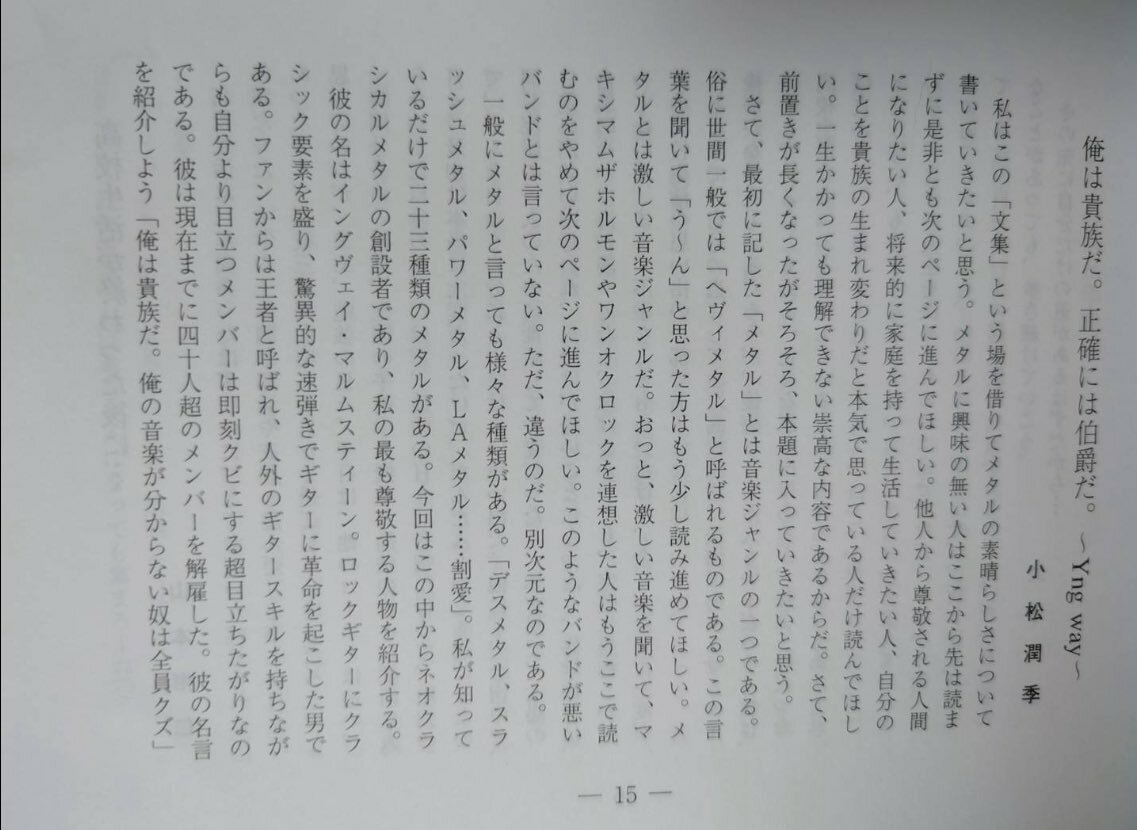 俺は貴族だ。正確には伯爵だ。 〜Yng way〜
小松潤季
私はこの「文集」という場を借りてメタルの素晴らしさについて
書いていきたいと思う。メタルに興味の無い人はここから先は読ま
ずに是非とも次のページに進んでほしい。他人から尊敬される人間
になりたい人、将来的に家庭を持って生活していきたい人、自分の
ことを貴族の生まれ変わりだと本気で思っている人だけ読んでほし
い。一生かかっても理解できない崇高な内容であるからだ。さて、
前置きが長くなったがそろそろ、本題に入っていきたいと思う。
さて、最初に記した「メタル」とは音楽ジャンルの一つである。
俗に世間一般では「ヘヴィメタル」と呼ばれるものである。この言
葉を聞いて「う〜ん」と思った方はもう少し読み進めてほしい。メ
タルとは激しい音楽ジャンルだ。おっと、激しい音楽を聞いて、マ
キシマムザホルモンやワンオクロックを連想した人はもうここで読
むのをやめて次のページに進んでほしい。このようなバンドが悪い
バンドとは言っていない。ただ、違うのだ。別次元なのである。
一般にメタルと言っても様々な種類がある。「デスメタル、スラ
ッシュメタル、パワーメタル、LAメタル……割愛」。私が知って
いるだけで二十三種類のメタルがある。今回はこの中からネオクラ
シカルメタルの創設者であり、私の最も尊敬する人物を紹介する。
彼の名はイングヴェイ・マルムスティーン。ロックギターにクラ
シック要素を盛り、驚異的な速弾きでギターに革命を起こした男で
ある。ファンからは王者と呼ばれ、人外のギタースキルを持ちなが
らも自分より目立つメンバーは即刻クビにする超目立ちたがりなの
である。彼は現在までに四十人超のメンバーを解雇した。彼の名言
を紹介しよう「俺は貴族だ。俺の音楽が分からない奴は全員クズ」
— 15 —